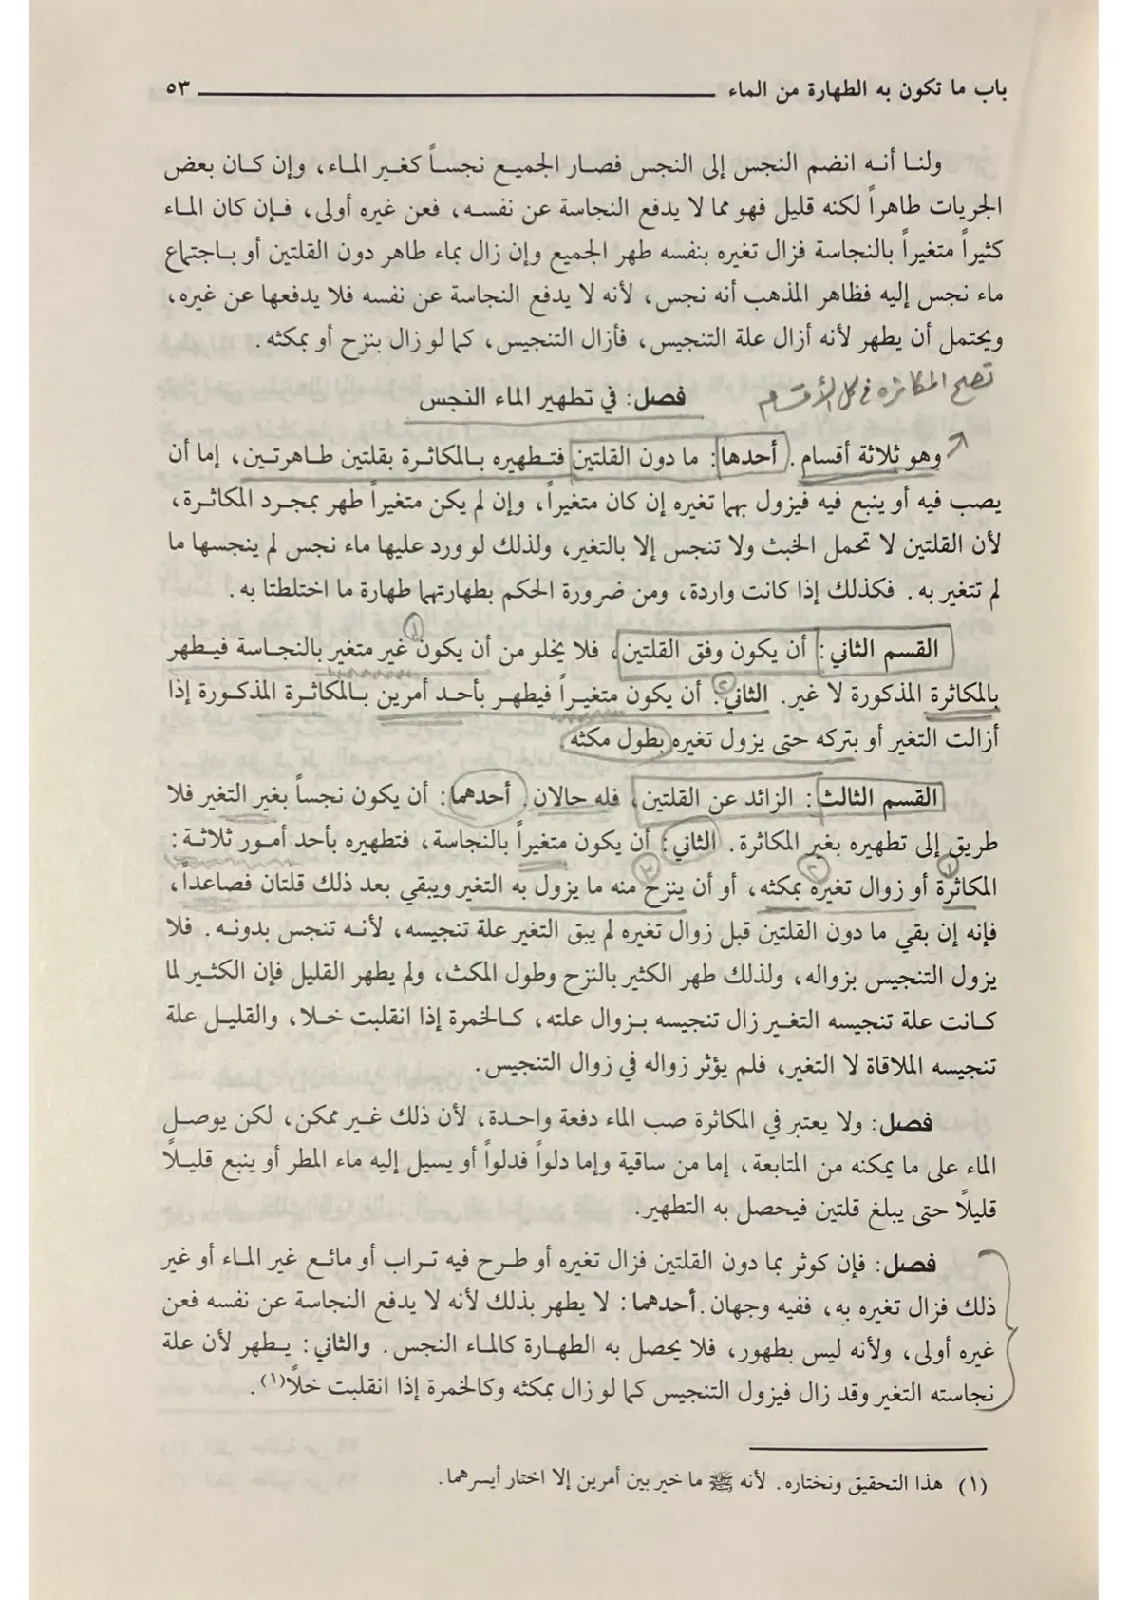 باب ما تكون به الطهارة من الماء ٥٣
ولنا أنه انضم النجس إلى النجس فصار الجميع نجساً كغير الماء، وإن كان بعض
الجريات طاهراً لكنه قليل فهو مما لا يدفع النجاسة عن نفسه، فعن غيره أولى، فإن كان الماء
كثيراً متغيراً بالنجاسة فزال تغيره بنفسه طهر الجميع وإن زال بماء طاهر دون القلتين أو باجتماع
ماء نجس إليه فظاهر المذهب أنه نجس، لأنه لا يدفع النجاسة عن نفسه فلا يدفعها عن غيره،
ويحتمل أن يطهر لأنه أزال علة التنجيس، فأزال التنجيس، كما لو زال بنزح أو بمكثه.
تصح المكاثرة في كل الأقسام
فصل: في تطهير الماء النجس
وهو ثلاثة أقسام. أحدها: ما دون القلتين فتطهيره بالمكاثرة بقلتين طاهرتين، إما أن
يصب فيه أو ينبع فيه فيزول بهما تغيره إن كان متغيراً، وإن لم يكن متغيراً طهر بمجرد المكاثرة،
لأن القلتين لا تحمل الخبث ولا تنجس إلا بالتغير، ولذلك لو ورد عليها ماء نجس لم ينجسها ما
لم تتغير به. فكذلك إذا كانت واردة، ومن ضرورة الحكم بطهارتهما طهارة ما اختلطتا به.
١
القسم الثاني: أن يكون وفق القلتين، فلا يخلو من أن يكون غير متغير بالنجاسة فيطهر
٢
بالمكاثرة المذكورة لا غير. الثاني: أن يكون متغيراً فيطهر بأحد أمرين بالمكاثرة المذكورة إذا
أزالت التغير أو بتركه حتى يزول تغيره بطول مكثه.
القسم الثالث: الزائد عن القلتين، فله حالان. أحدهما: أن يكون نجساً بغير التغير فلا
طريق إلى تطهيره بغير المكاثرة. الثاني: أن يكون متغيراً بالنجاسة، فتطهيره بأحد أمور ثلاثة:
١ ٢ ٣
المكاثرة أو زوال تغيره بمكثه، أو أن ينزح منه ما يزول به التغير ويبقي بعد ذلك قلتان فصاعداً،
فإنه إن بقي ما دون القلتين قبل زوال تغيره لم يبق التغير علة تنجيسه، لأنه تنجس بدونه. فلا
يزول التنجيس بزواله، ولذلك طهر الكثير بالنزح وطول المكث، ولم يطهر القليل فإن الكثير لما
كانت علة تنجيسه التغير زال تنجيسه بزوال علته، كالخمرة إذا انقلبت خلا، والقليل علة
تنجيسه الملاقاة لا التغير، فلم يؤثر زواله في زوال التنجيس.
فصل: ولا يعتبر في المكاثرة صب الماء دفعة واحدة، لأن ذلك غير ممكن، لكن يوصل
الماء على ما يمكنه من المتابعة، إما من ساقية وإما دلواً فدلواً أو يسيل إليه ماء المطر أو ينبع قليلاً
قليلاً حتى يبلغ قلتين فيحصل به التطهير.
فصل: فإن كوثر بما دون القلتين فزال تغيره أو طرح فيه تراب أو مائع غير الماء أو غير
ذلك فزال تغيره به، ففيه وجهان. أحدهما: لا يطهر بذلك لأنه لا يدفع النجاسة عن نفسه فعن
غيره أولى، ولأنه ليس بطهور، فلا يحصل به الطهارة كالماء النجس. والثاني: يطهر لأن علة
نجاسته التغير وقد زال فيزول التنجيس كما لو زال بمكثه وكالخمرة إذا انقلبت خلاً(١).
(١) هذا التحقيق ونختاره. لأنه ﷺ ما خير بين أمرين إلا اختار أيسرهما.